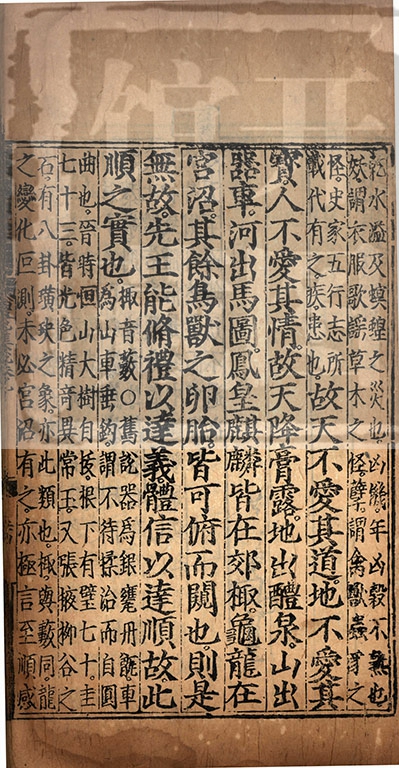 乾水溢及螟蝗之災也凶饑年凶穀不熟也
妖謂衣服歌謠草木之怪孽謂禽獸蟲豸之
怪。史家五行志所
載代有之疾患也
故天不愛其道。地不愛其
寶。人不愛其情。故天降膏露。地出醴泉。山出
器車。河出馬圖。鳳皇麒麟。皆在郊棷。龜龍在
宮沼。其餘鳥獸之卵胎。皆可俯而闚也。則是
無故。先王能脩禮以達義。體信以達順。故此
順之實也。
棷音藪○舊說器為銀甕丹甑。車
為山車垂鉤。謂不待揉治而自圓
曲也。晉時恒山大樹自拔。根下有璧七十。圭
七十三。皆光色精奇異常玉。又張掖柳谷之
石。有八卦璜玦之象。亦此類也。棷與藪同。龍
之變化叵測。未必宮沼有之。亦極言至順感